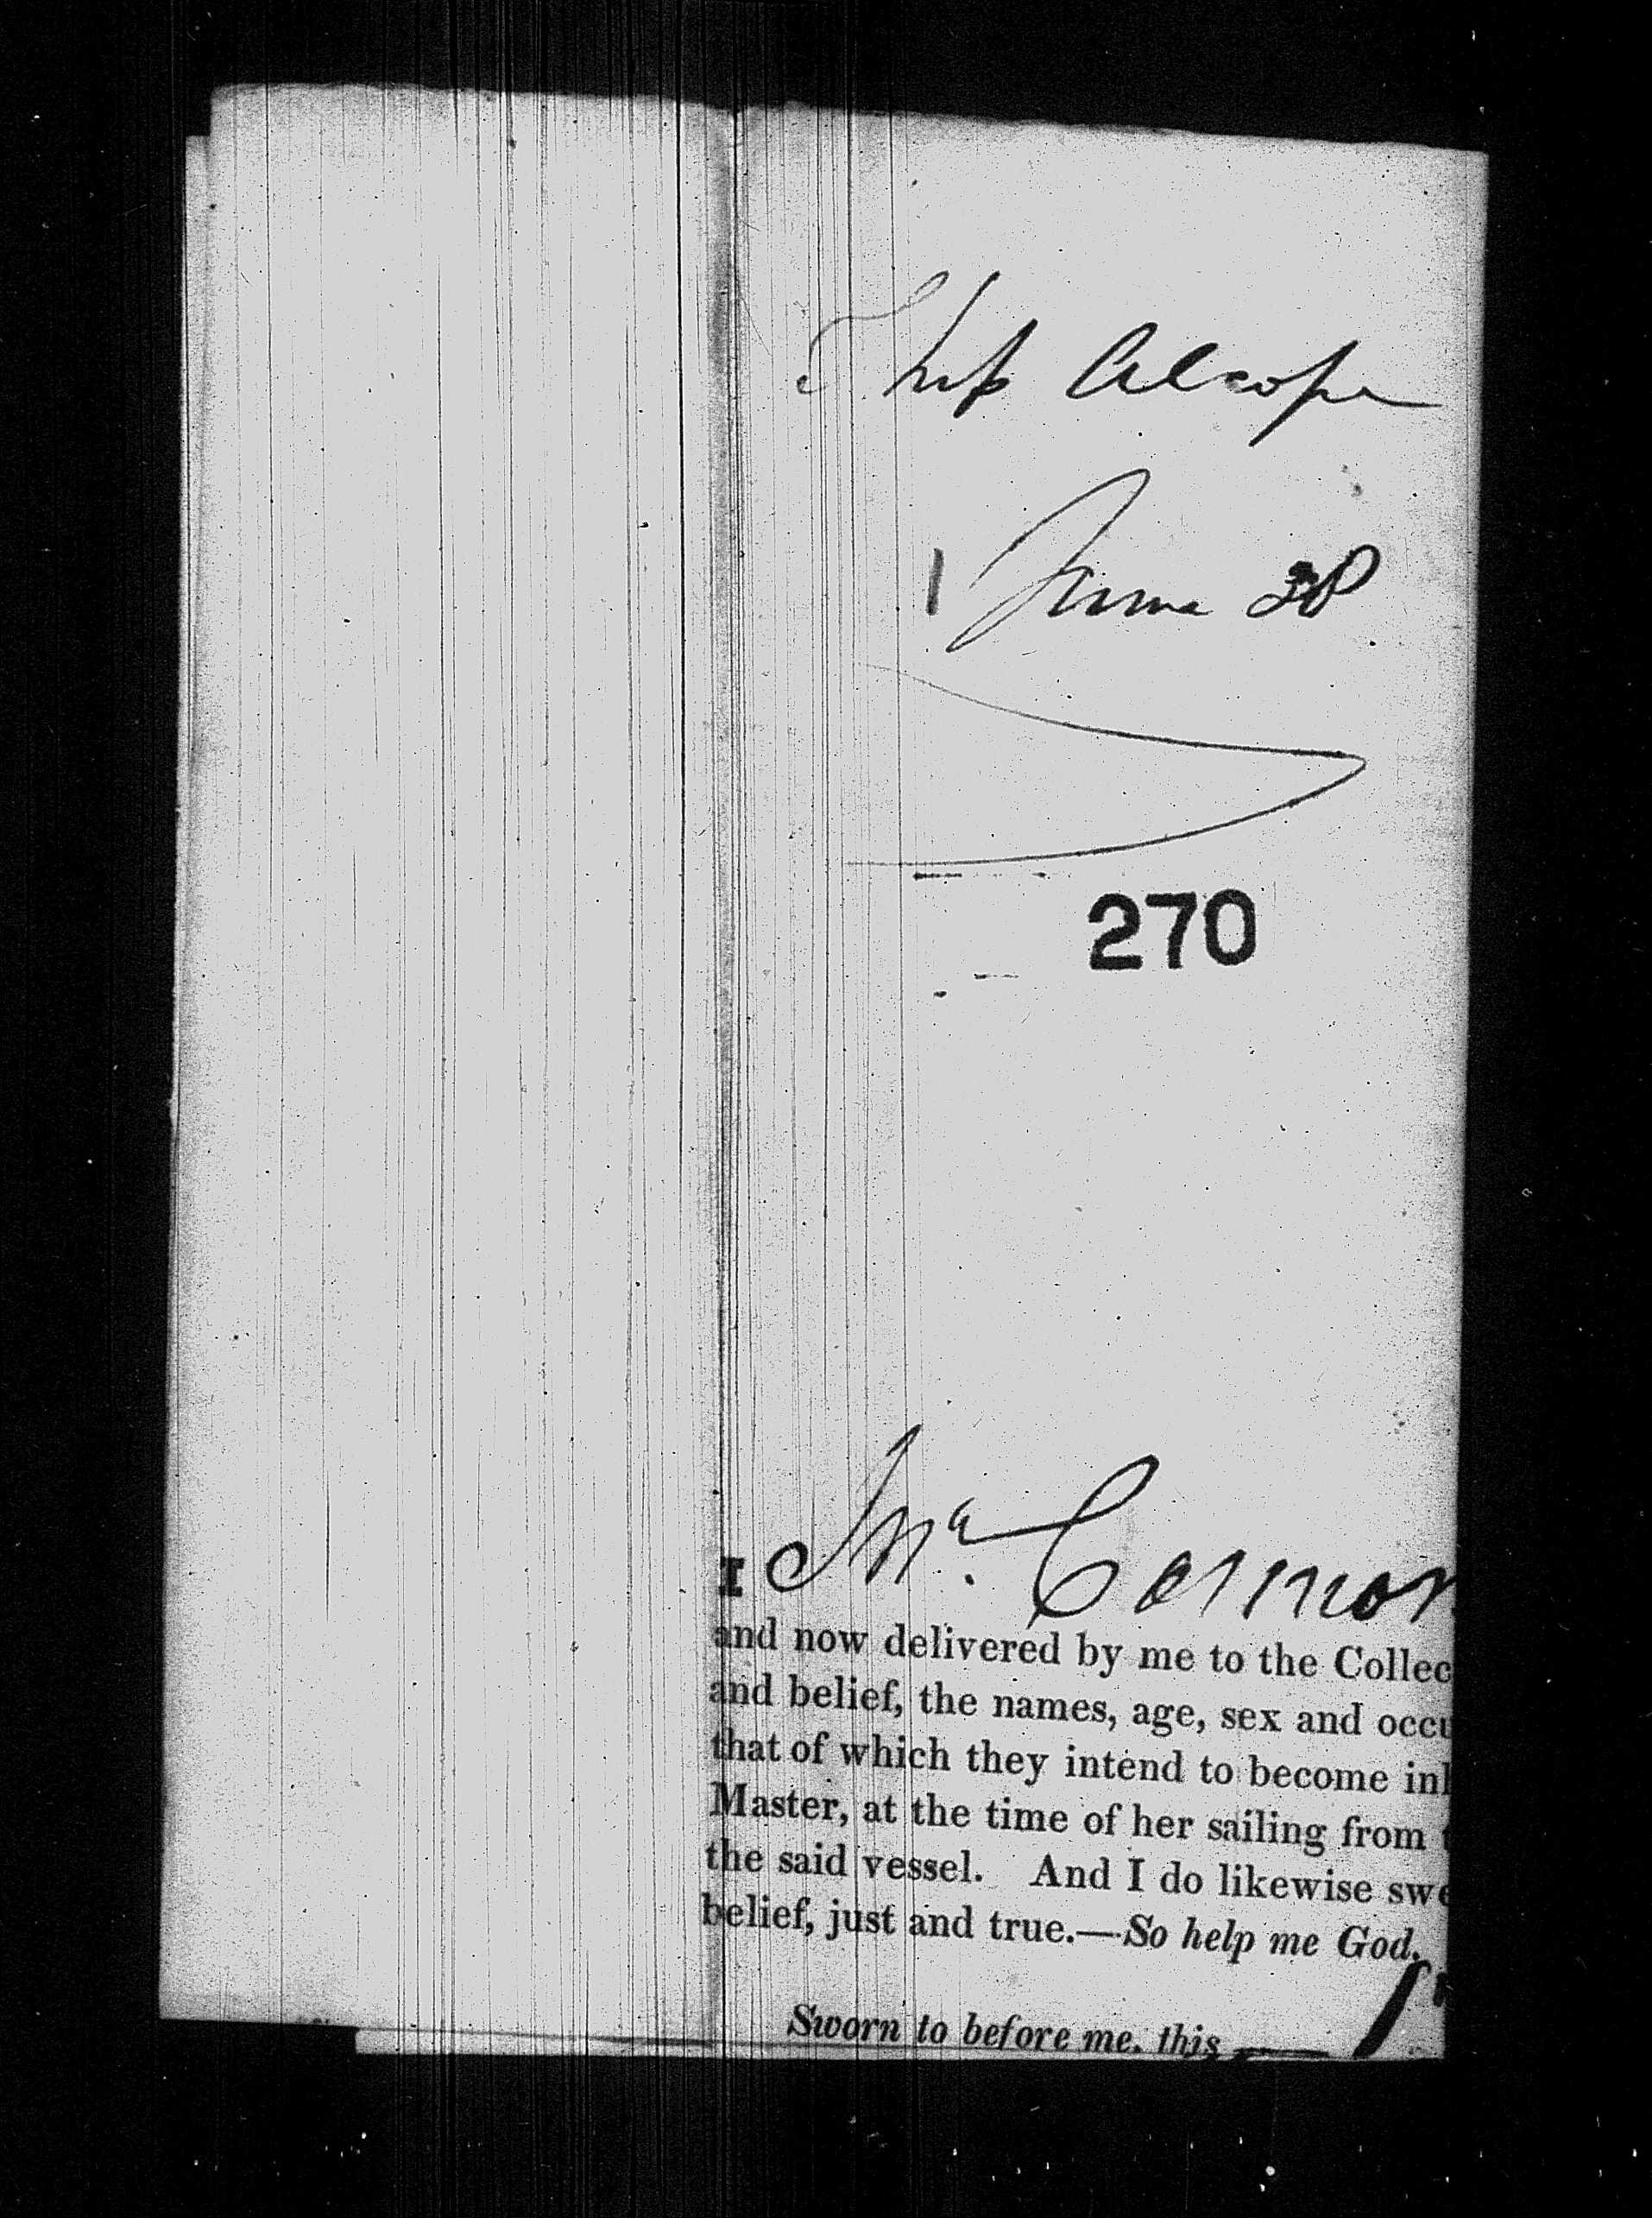 Ship
June
270
I
and now delivered by me to the Collec
and belief, the names, age, sex and occu
that of which they intend to become in
Master, at the time of her sailing from
the said vessel. And I do likewise swe
belief, just and true.—So help me God.
Sworn to before me, this